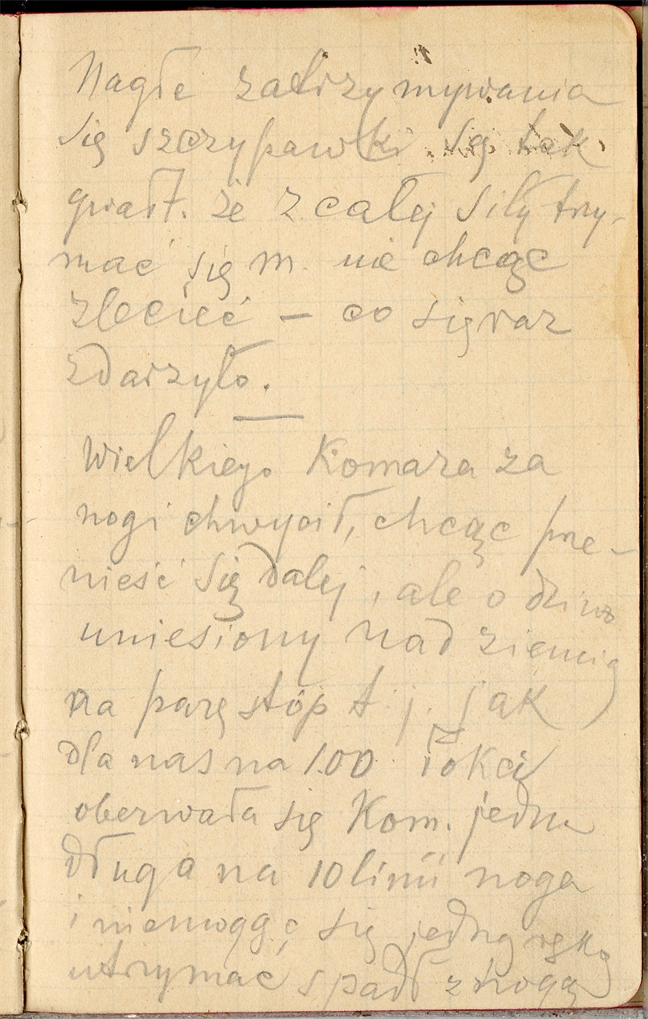 Nagłe zatrzymywania
się szczypawki są tak
gwałt. że z całej siły trzy-
mać się m. nie chcąc
zlecieć – co się raz
zdarzyło.
Wielkiego Komara za
nogi chwycił, chcąc prze-
nieść się dalej, ale o dziwo
uniesiony nad ziemią
na parę stóp t. j. jak
dla nas na 100 łokci
oberwała się Kom. jedna
długa na 10 linii noga
i niemogąc się jedną ręką
utrzymać spadł z nogą